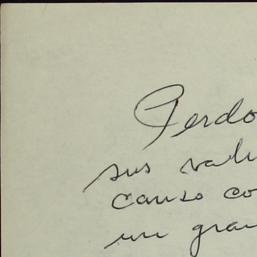 Perdo
sus valu
causo co
un gran